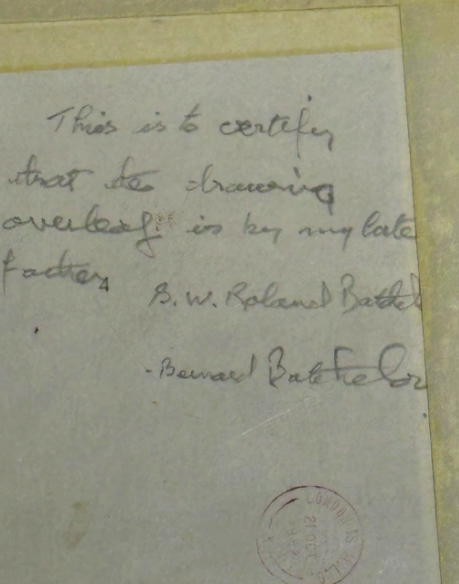 This is to certify
that the drawing
overleaf is by my late
father
S. W. Roland Batchel
- Bernard Batchelor
LONDON
21 OCT